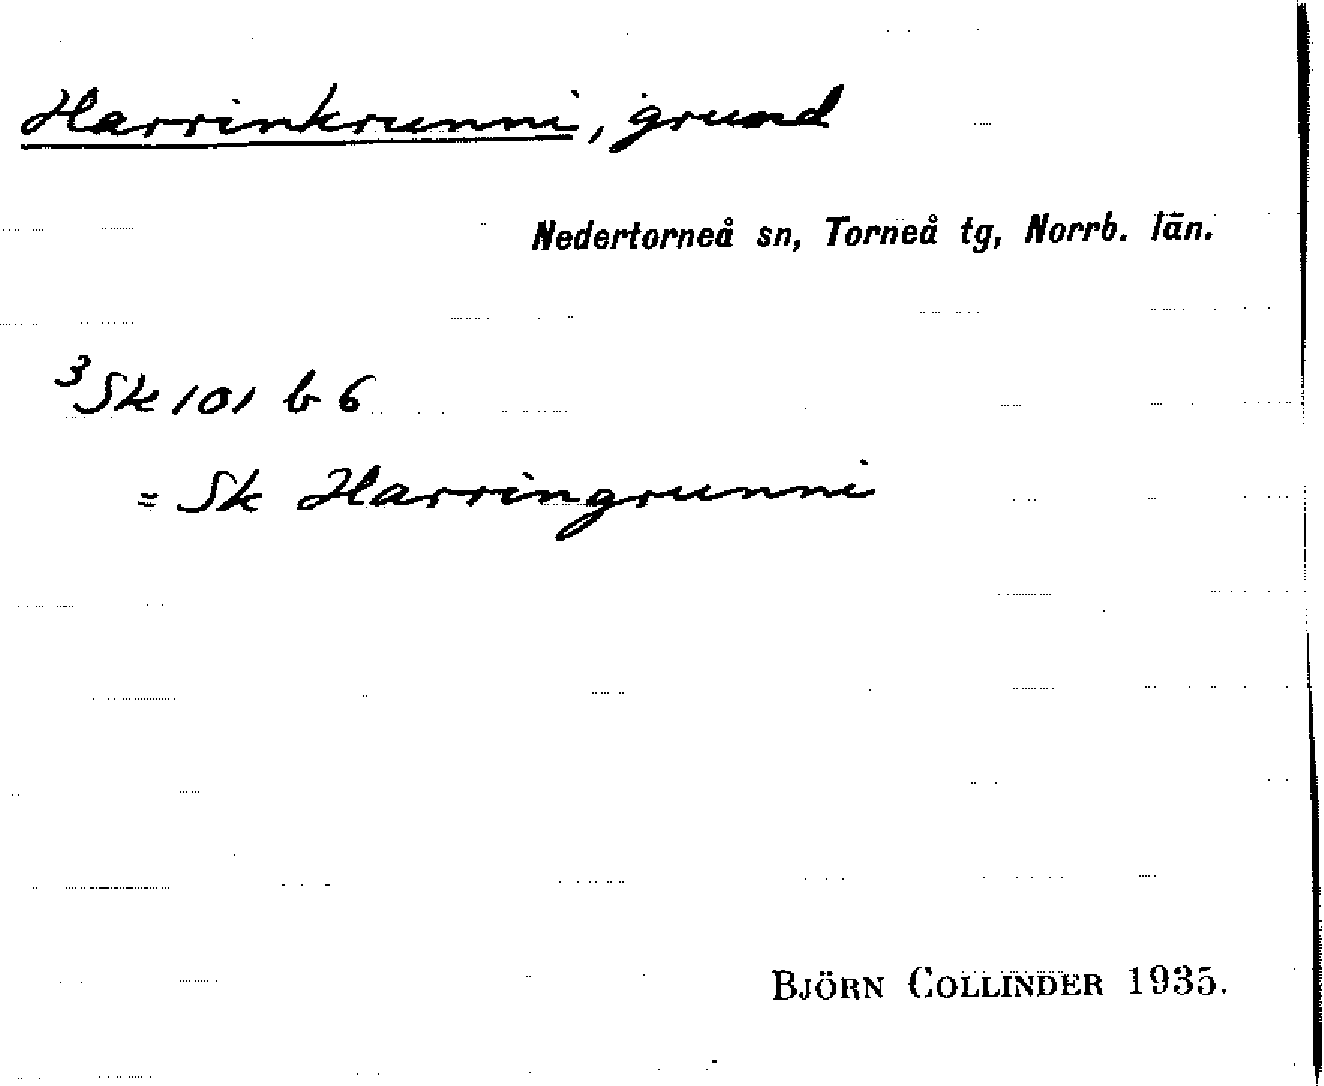 Harrinkrunni, grund
Nedertorneå sn, Torneå tg, Norrb. län.
³Sk 101 b 6
= Sk Harringrunni
BJÖRN COLLINDER 1935.